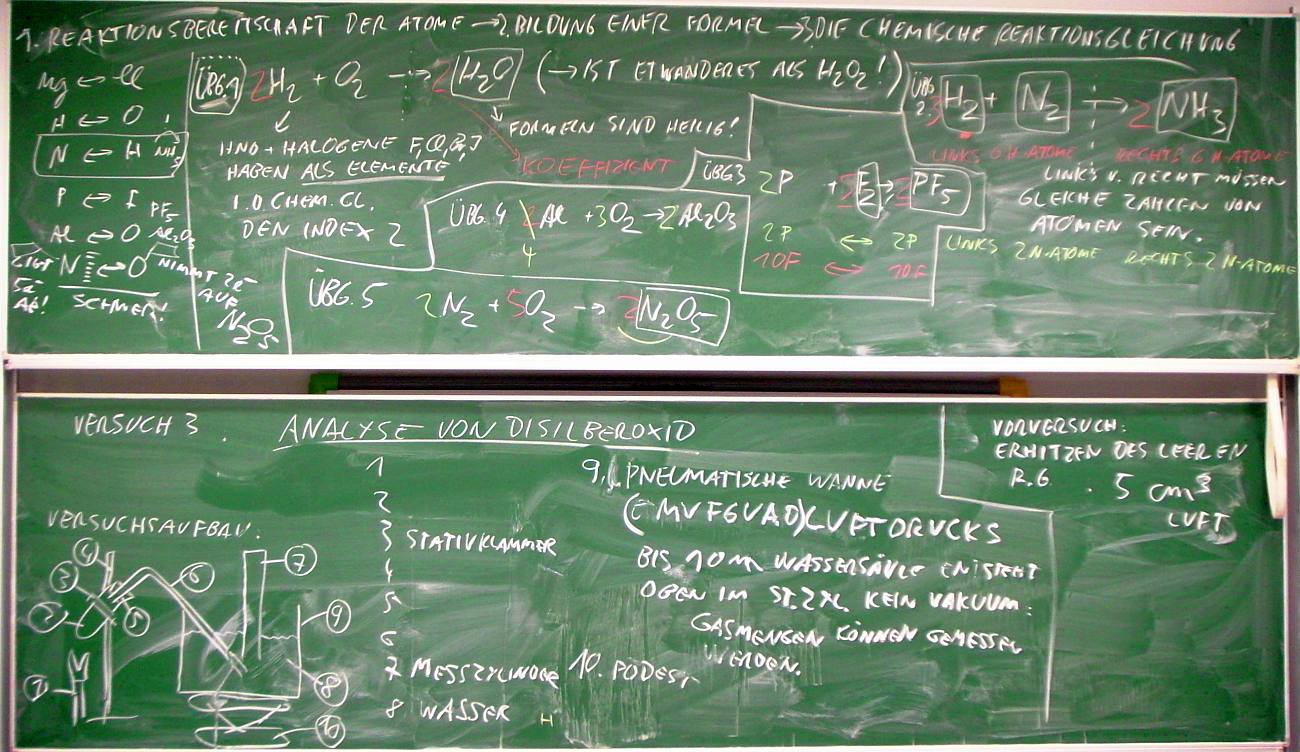 1. REAKTIONSBEREITSCHAFT DER ATOME → 2. BILDUNG EINER FORMEL → 3. DIE CHEMISCHE REAKTIONSGLEICHUNG
Mg ↔ Cl
H ↔ O
N ↔ H NH3
P ↔ F PF5
Al ↔ O Al2O3
N ↔ O
GIBT 5e- AB!
NIMMT 2e- AUF
SCHWER!
N2O5
ÜBG.1 2H2 + O2 → 2 H2O (→ IST ETWANDERES ALS H2O2!)
HNO + HALOGENE F, Cl, Br, J
HABEN ALS ELEMENTE
I.D CHEM. GL.
DEN INDEX 2
FORMELN SIND HEILIG!
KOEFFIZIENT
ÜBG. 2. 3 H2 + N2 → 2 NH3
LINKS 6 H-ATOME RECHTS 6 H-ATOME
LINKS U. RECHT MÜSSEN
GLEICHE ZAHLEN VON
ATOMEN SEIN.
LINKS 2N-ATOME RECHTS 2 N-ATOME
ÜBG3 2P + 5F2 → 2 PF5
2P ↔ 2P
10F ↔ 10F
ÜBG. 4 2Al + 3O2 → 2Al2O3
4
ÜBG. 5 2N2 + 5O2 → 2 N2O5
VERSUCH 3. ANALYSE VON DISILBEROXID
VERSUCHSAUFBAU:
4
3
2
5
6
7
9
1
8
10
1
2
3 STATIVKLAMMER
4
5
6
7 MESSZYLINDER
8 WASSER
H
9. PNEUMATISCHE WANNE
LUFTDRUCKS
BIS 10 m WASSERSÄULE ENTSTEHT
OBEN IM ST.ZYL. KEIN VAKUUM:
GASMENGEN KÖNNEN GEMESSEN
WERDEN.
10. PODEST
VORVERSUCH:
ERHITZEN DES LEEREN
R.G. . 5 cm3
LUFT